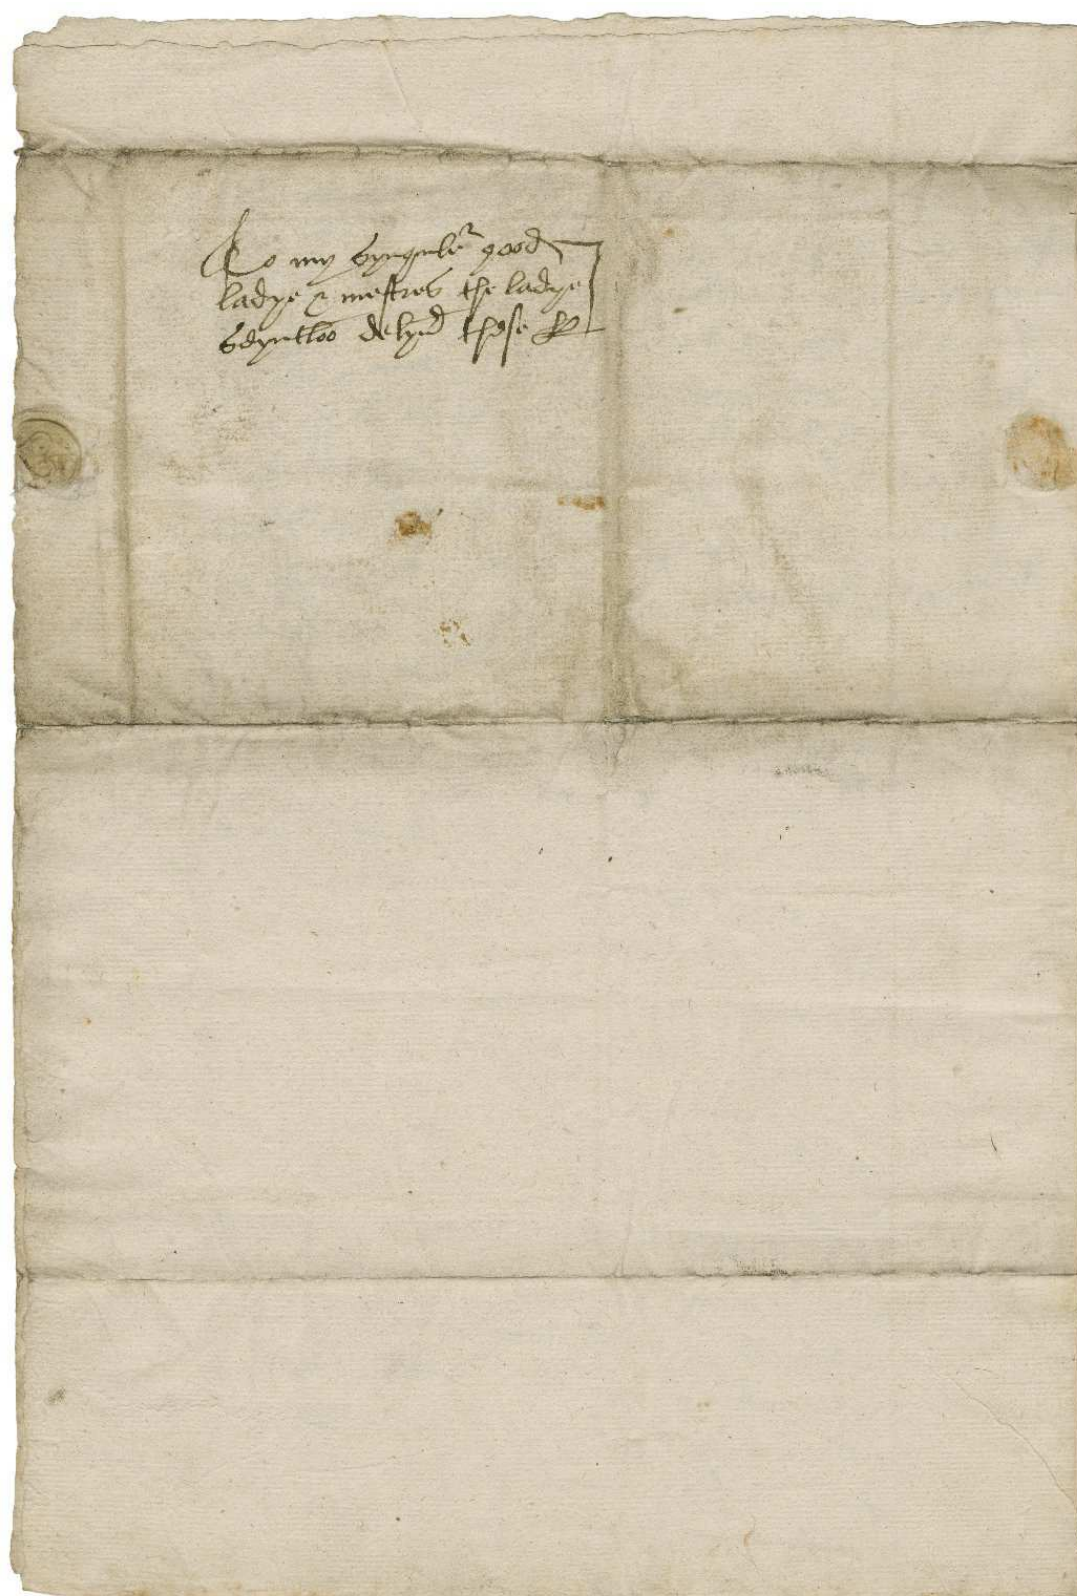 To my Syngule^r good
ladye & mestres the ladye
Seyntloo delyu^d these